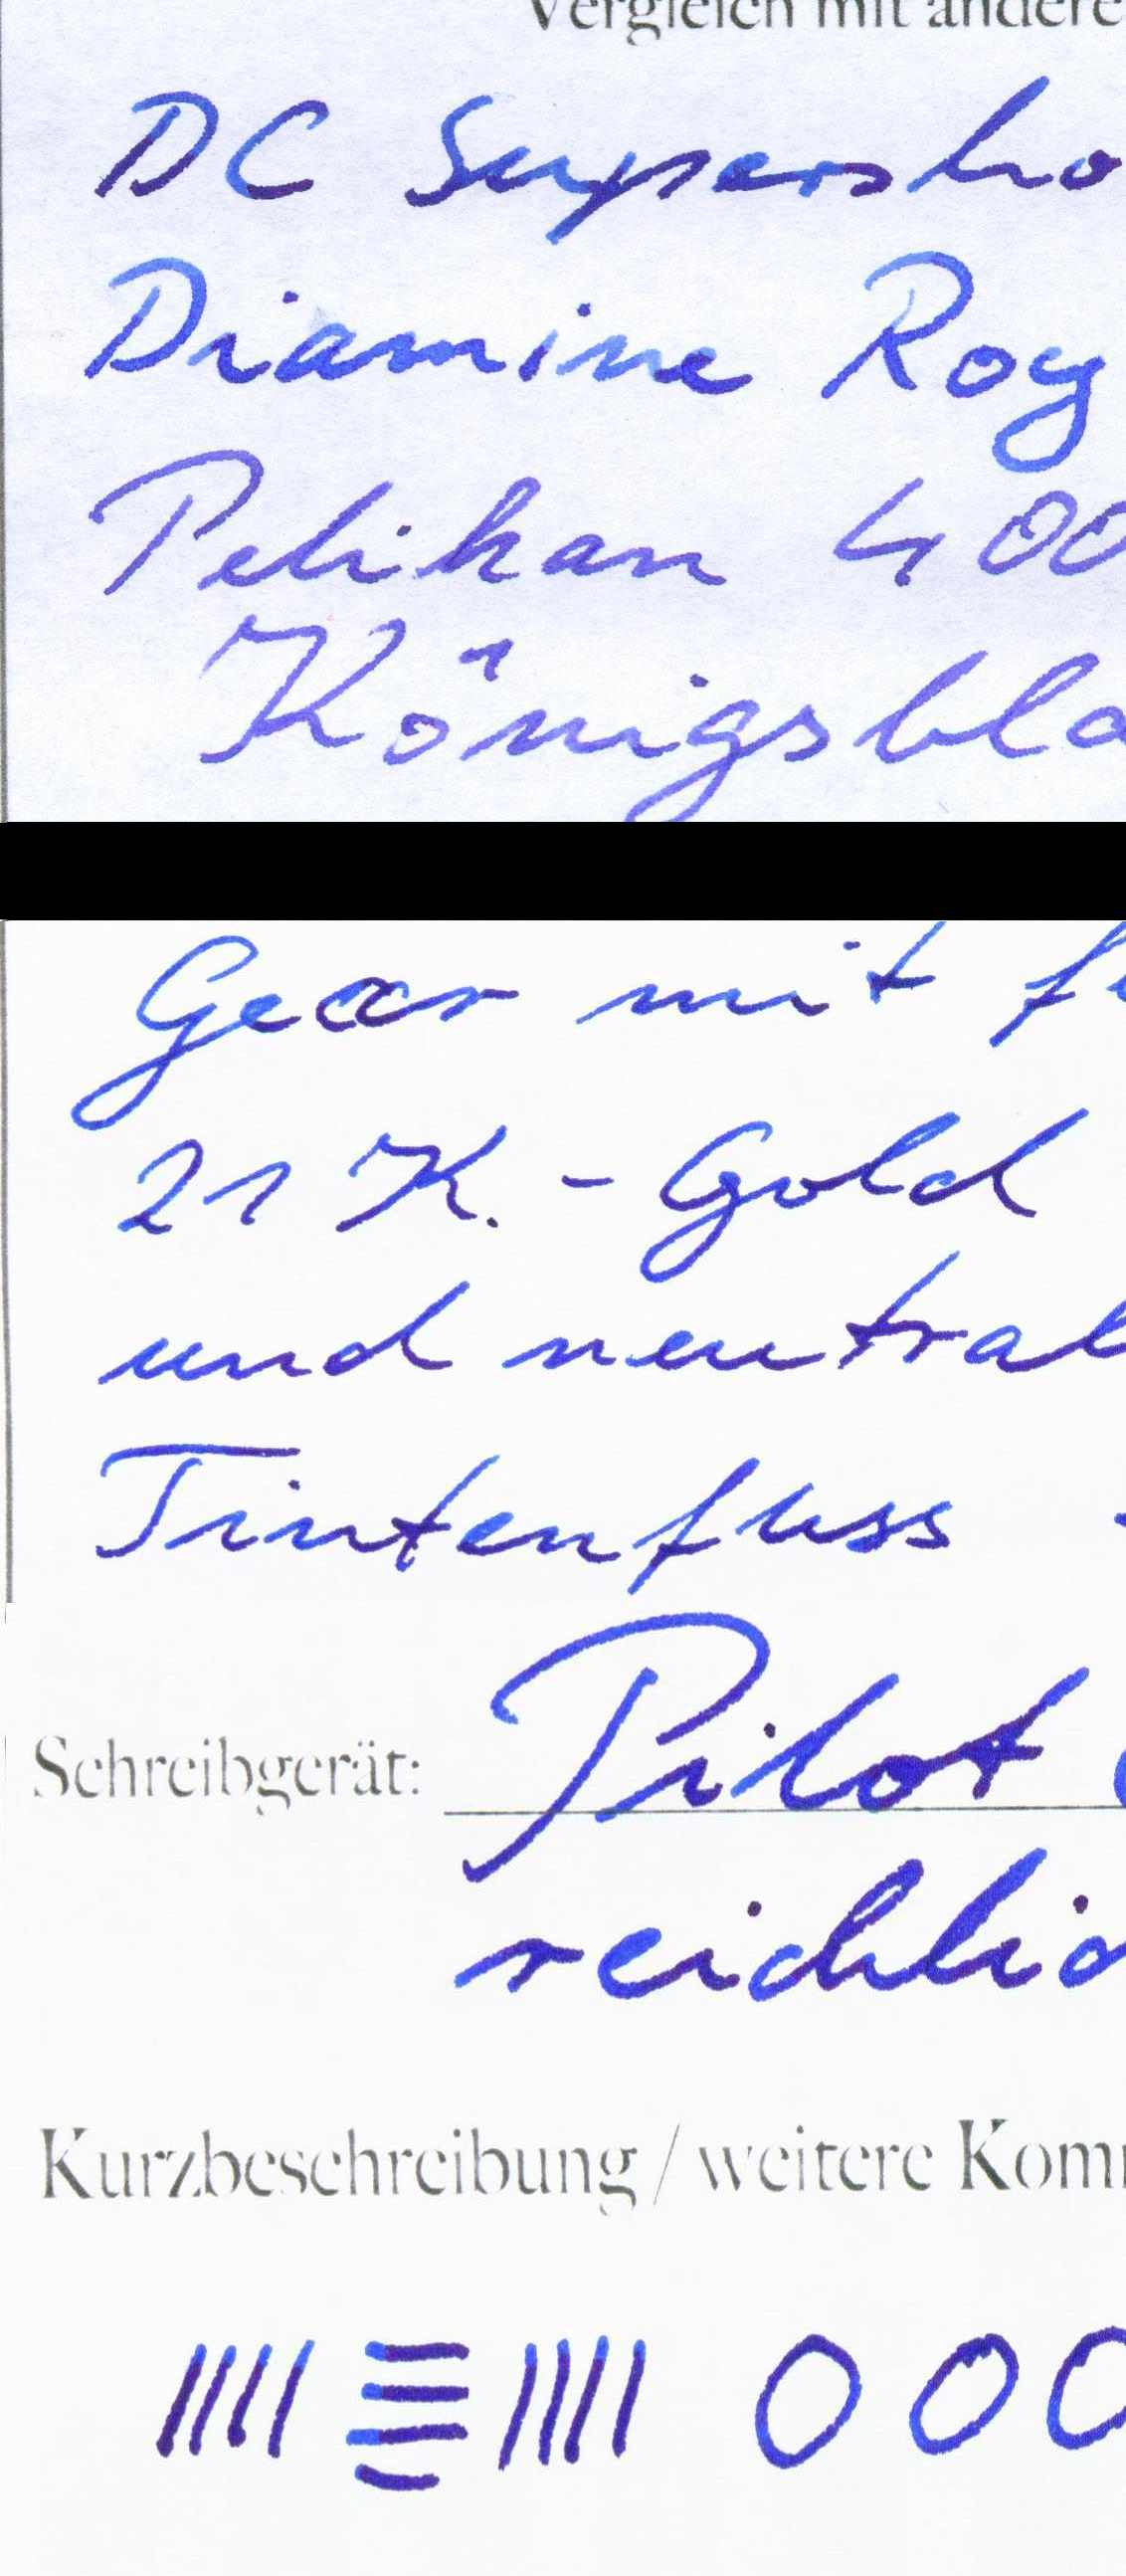 Vergleich mit andere
DC Supersho
Diamine Roy
Pelikan 400
Königsbla
Gear mit f
21 K. - Gold
und neutral
Tintenfluss
Schreibgerät: Pilot
reichlic
Kurzbeschreibung / weitere Kom